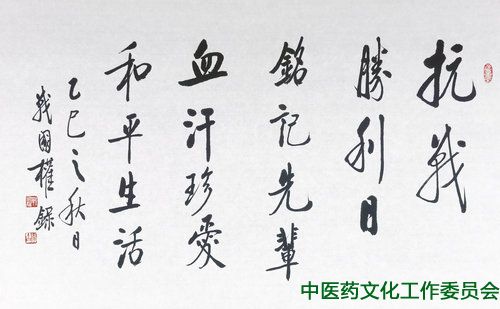 抗战
勝利日
銘记先輩
血汗珍愛
和平生活
乙巳之秋日
战國權録
中医药文化工作委员会